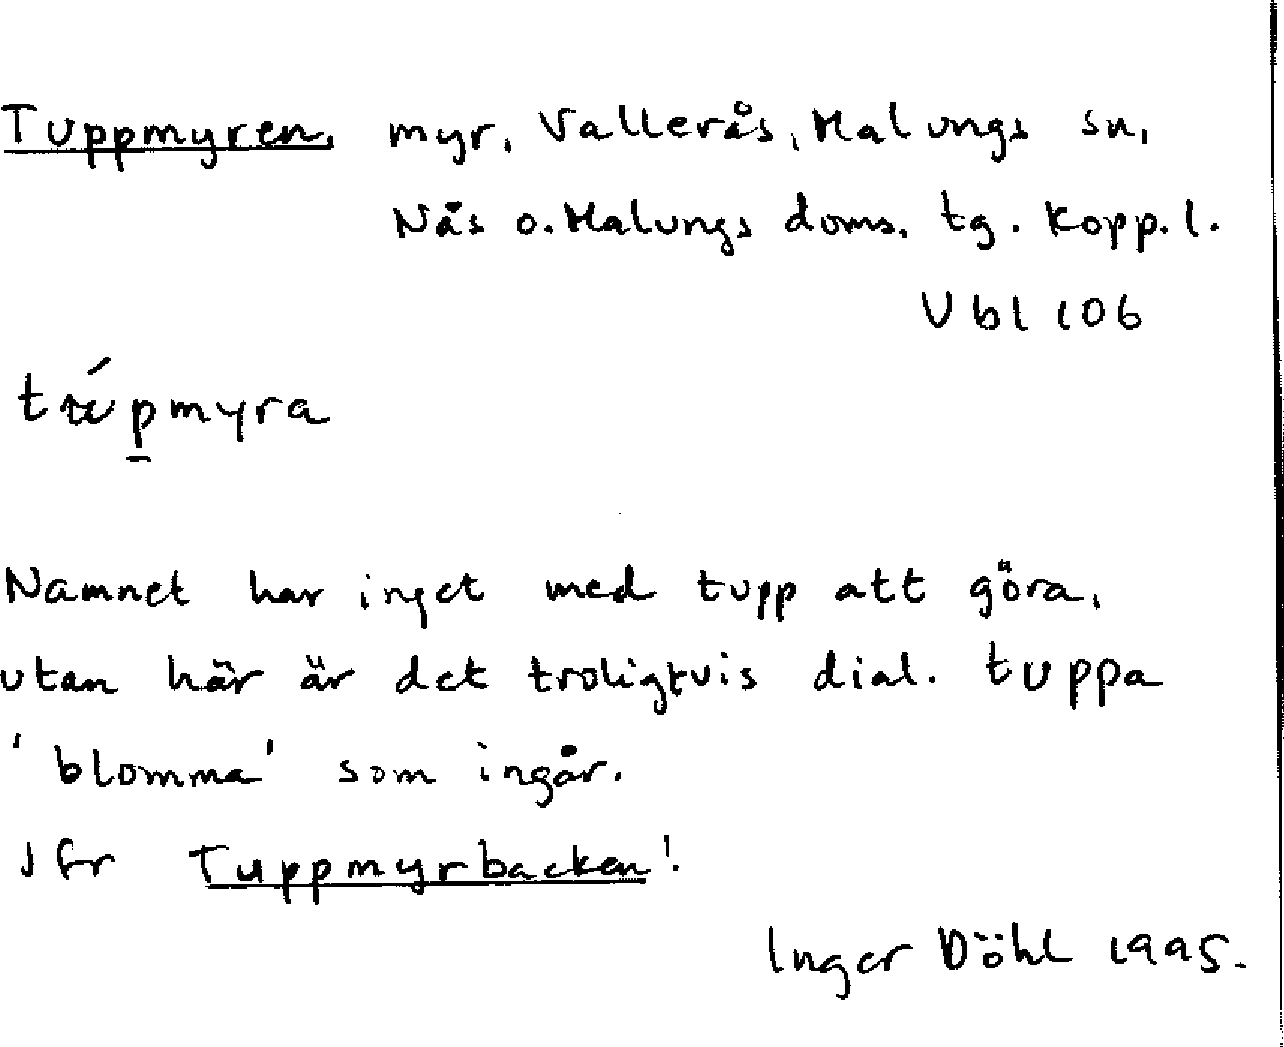 Tuppmyren, myr, Vallerås, Malungs sn,
Nås o. Malungs doms. tg. Kopp. l.
Ubl 106
Namnet har inget med tupp att göra,
utan här är det troligtvis dial. tuppa
'blomma' som ingår.
Jfr Tuppmyrbacken!
Inger Döhl 1995.